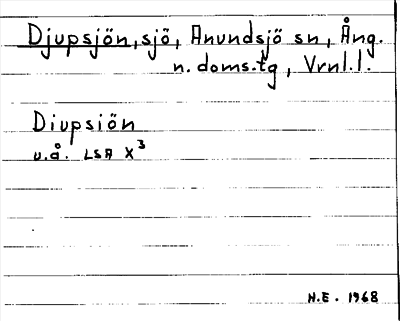 Djupsjön, sjö, Anundsjö sn, Ång.
n. doms.tg, Vrnl.l.
Diupsiön
u.å. LSA X³
N.E. 1968